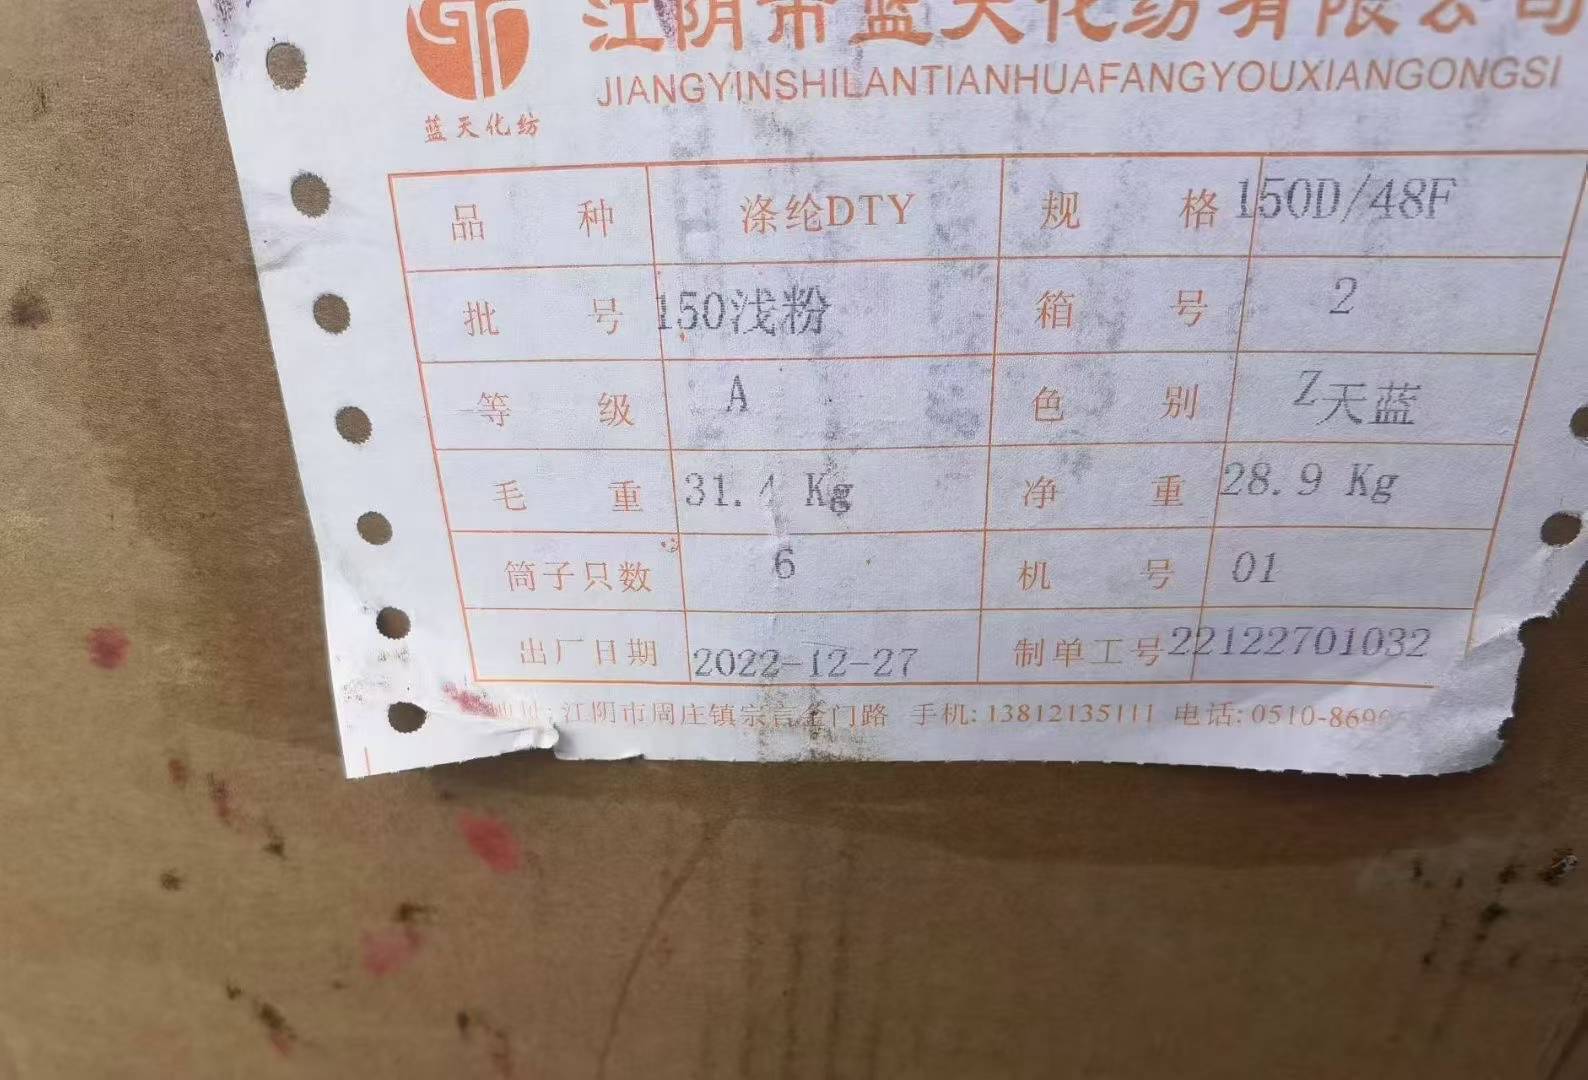 江阴市蓝天化纺有限公司
JIANGYINSHILANTIANHUAFANGYOUXIANGONGSI
蓝天化纺
品 种 涤纶DTY 规 格 150D/48F
批 号 150浅粉 箱 号 2
等 级 A 色 别 Z天蓝
毛 重 31.4 Kg 净 重 28.9 Kg
筒子只数 6 机 号 01
出厂日期 2022-12-27 制单工号 22122701032
地址: 江阴市周庄镇宗言金门路 手机: 13812135111 电话: 0510-869